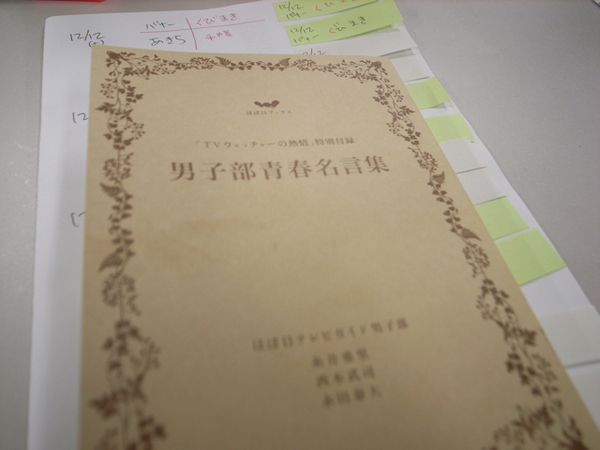 12/12
バナー
くびまき
あきら
12/12
バナー くびまき
12/12
ほぼ日ブックス
「TVウォッチャーの熱情」特別付録
男子部青春名言集
ほぼ日テレビガイド男子部
糸井重里
西本武司
永田泰大